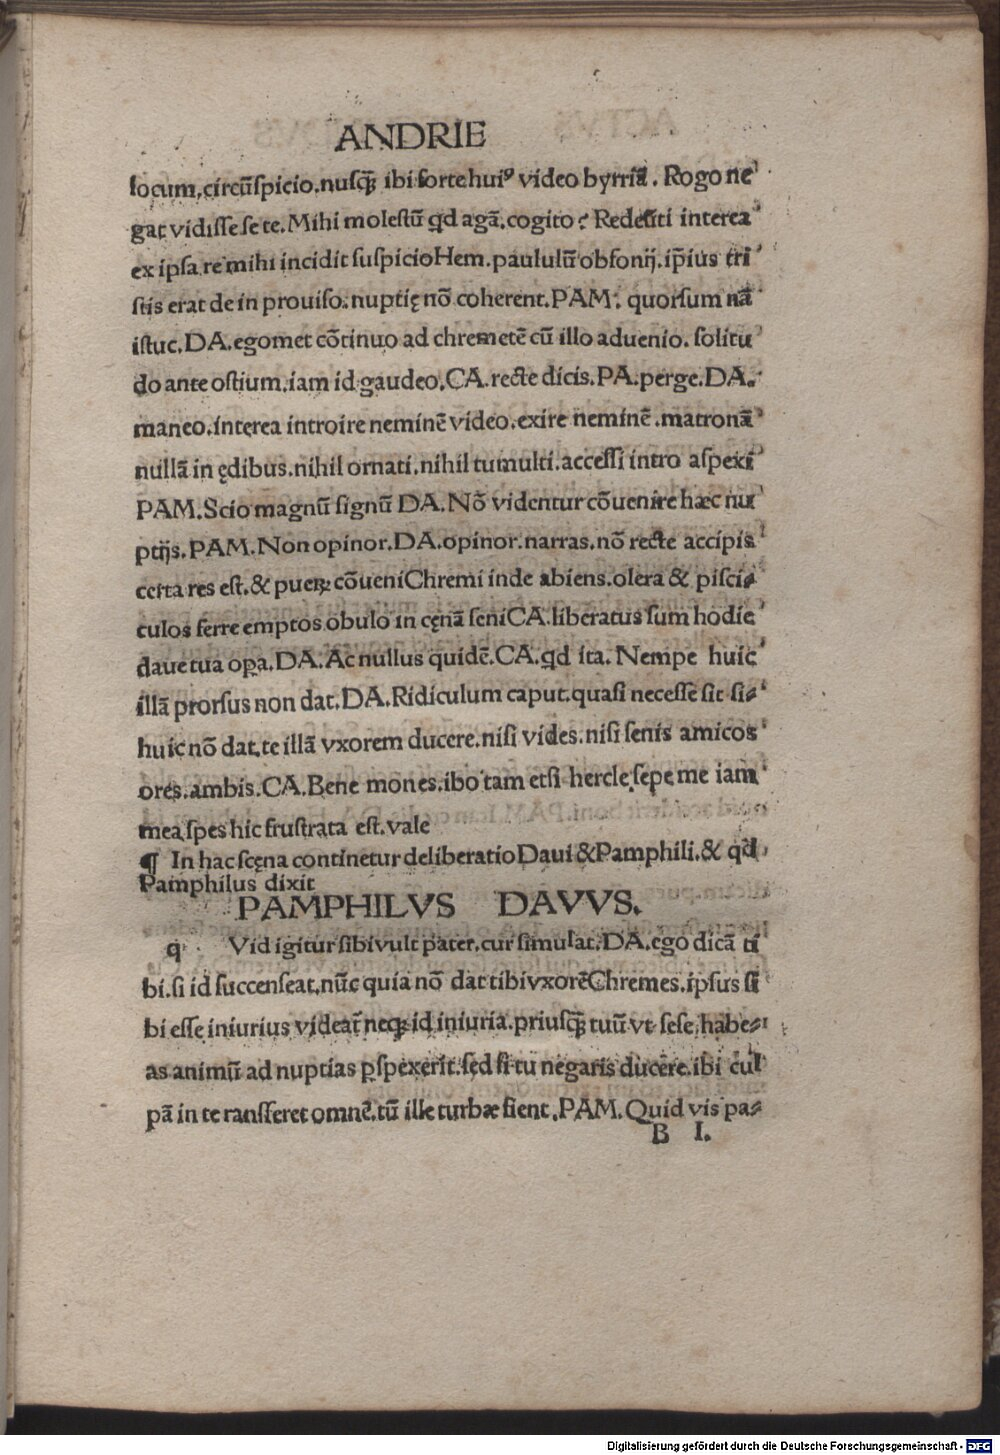 ANDRIE
locum,circũspicio.nusq̃ ibi forte huiꝰ video byrriã. Rogo ne
gat vidisse se te. Mihi molestũ qd agã.cogito: Redeũti interea
ex ipsa re mihi incidit suspicioHem.paululũ obsonij.ip̃ius tri
stis erat de in prouiso.nuptię nõ coherent.PAM. quorsum nã
istuc.DA.egomet cõtinuo ad chremetẽ cũ illo aduenio. solitu
do ante ostium.iam id gaudeo.CA.recte dicis.PA.perge.DA.
maneo.interea introire neminẽ video.exire neminẽ.matronã
nullã in ędibus.nihil ornati.nihil tumulti.accessi intro aspexi
PAM.Scio magnũ signũ DA.Nõ videntur cõuenire hæc nu
ptijs.PAM.Non opinor.DA.opinor.narras.nõ recte accipis
certa res est.& pueꝝ cõueniChremi inde abiens.olera & pisci⸗
culos ferre emptos obulo in cęnã seniCA.liberatus sum hodie
daue tua oꝑa.DA.Ac nullus quidẽ.CA.qd ita. Nempe huic
illã prorsus non dat.DA.Ridiculum caput.quasi necesse sit si⸗
huic nõ dat.te illã vxorem ducere.nisi vides.nisi senis amicos
ores.ambis.CA.Bene mones.ibo tam etsi hercle sepe me iam
mea spes hic frustrata est.vale
¶ In hac scęna continetur deliberatioDaui &Pamphili.& qd
Pamphilus dixit
PAMPHILVS DAVVS.
q Vid igitur sibivult pater.cur simulat.DA.ego dicã ti
bi.si id succenseat.nũc quia nõ dat tibivxorẽChremes.ipsus si
bi esse iniurius videat̃ neqꝫ id iniuria.priusq̃ tuũ vt sese habe⸗
as animũ ad nuptias ꝑspexerit.sed si tu negaris ducere.ibi cul
pã in te ransferet omnẽ.tũ ille turbæ fient.PAM.Quid vis pa⸗
B I.
Digitalisierung gefördert durch die Deutsche Forschungsgemeinschaft - DFG